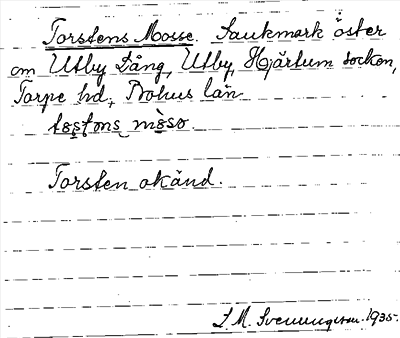 Torstens Mosse. Sankmark öster
om Utby Lång, Utby, Hjärtum socken,
Torpe hd., Bohus län
tɷstons mòso.
Torsten okänd.
L. M. Svenungsson. 1935.